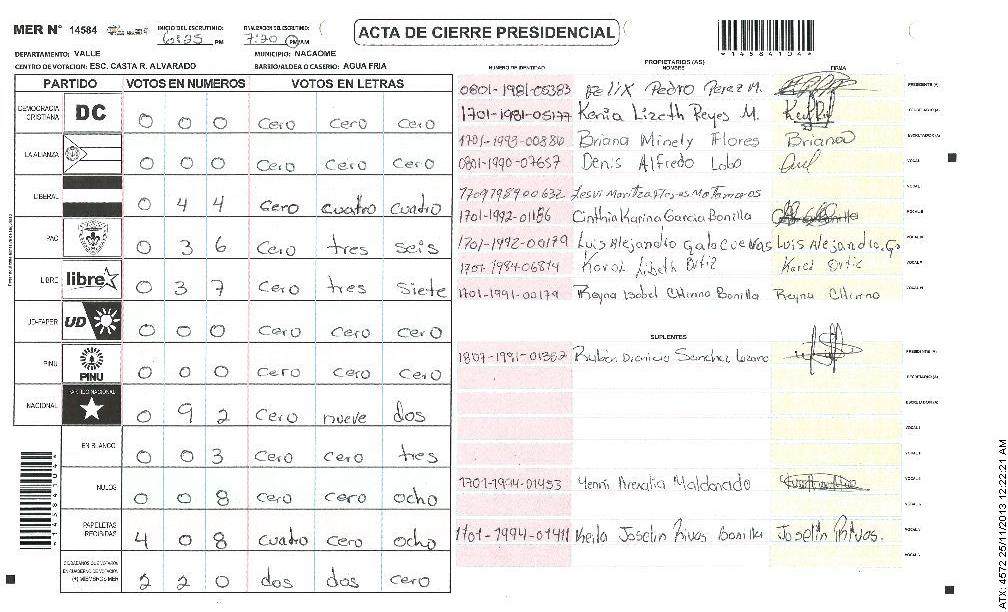 MER N° 14584
INICIO DEL ESCRUTINIO:
6:25 PM
FINALIZACION DEL ESCRUTINIO:
7:20 PM AM
ACTA DE CIERRE PRESIDENCIAL
*1458410４*
DEPARTAMENTO: VALLE
MUNICIPIO: NACAOME
CENTRO DE VOTACION: ESC. CASTA R. ALVARADO
BARRIO/ALDEA O CASERIO: AGUA FRIA
PARTIDO VOTOS EN NUMEROS VOTOS EN LETRAS
DEMOCRACIA CRISTIANA DC 0 0 0 Cero Cero Cero
LA ALIANZA 0 0 0 Cero Cero Cero
LIBERAL 0 4 4 Cero cuatro cuadro
PAC 0 3 6 Cero tres seis
LIBRE libre 0 3 7 Cero tres siete
UD-FAPER UD 0 0 0 Cero Cero Cero
PINU PINU 0 0 0 Cero Cero Cero
NACIONAL PARTIDO NACIONAL 0 9 2 Cero nueve dos
EN BLANCO 0 0 3 Cero Cero tres
NULOS 0 0 8 Cero Cero ocho
PAPELETAS RECIBIDAS 4 0 8 cuatro cero ocho
CIUDADANOS QUE VOTARON EN CUADERNO DE VOTACION (+) MIEMBROS MER 2 2 0 dos dos cero
PROPIETARIOS (AS)
NUMERO DE IDENTIDAD NOMBRE FIRMA
0801-1981-05383 Felix Pedro Perez M. PRESIDENTE (A)
1701-1981-05177 Kenia Lizeth Reyes M. SECRETARIO (A)
1701-1993-00880 Briana Minely Flores Briana ESCRUTADOR (A)
0801-1990-07657 Denis Alfredo Lobo VOCAL I
1709798900632
1701-1992-01186 Cinthia Karina Garcia Bonilla
1701-1992-00179 Luis Alejandro Galo Cuevas Luis Alejandro. G.
1701-1984-06814 Karol Lizbeth Ortiz Karol Ortiz
1701-1991-00179 Reyna Isabel Chirino Bonilla Reyna Chirino
SUPLENTES
1807-1981-01362 Rubén Dionicio Sanchez Lozano PRESIDENTE (A)
SECRETARIO (A)
ESCRUTADOR (A)
VOCAL I
1701-1994-01453 Yenni Maldonado
1701-1994-01411 Keila Joselin Rivas Bonilla Joselin Rivas.
ATX: 4572 25/11/2013 12:22:21 AM